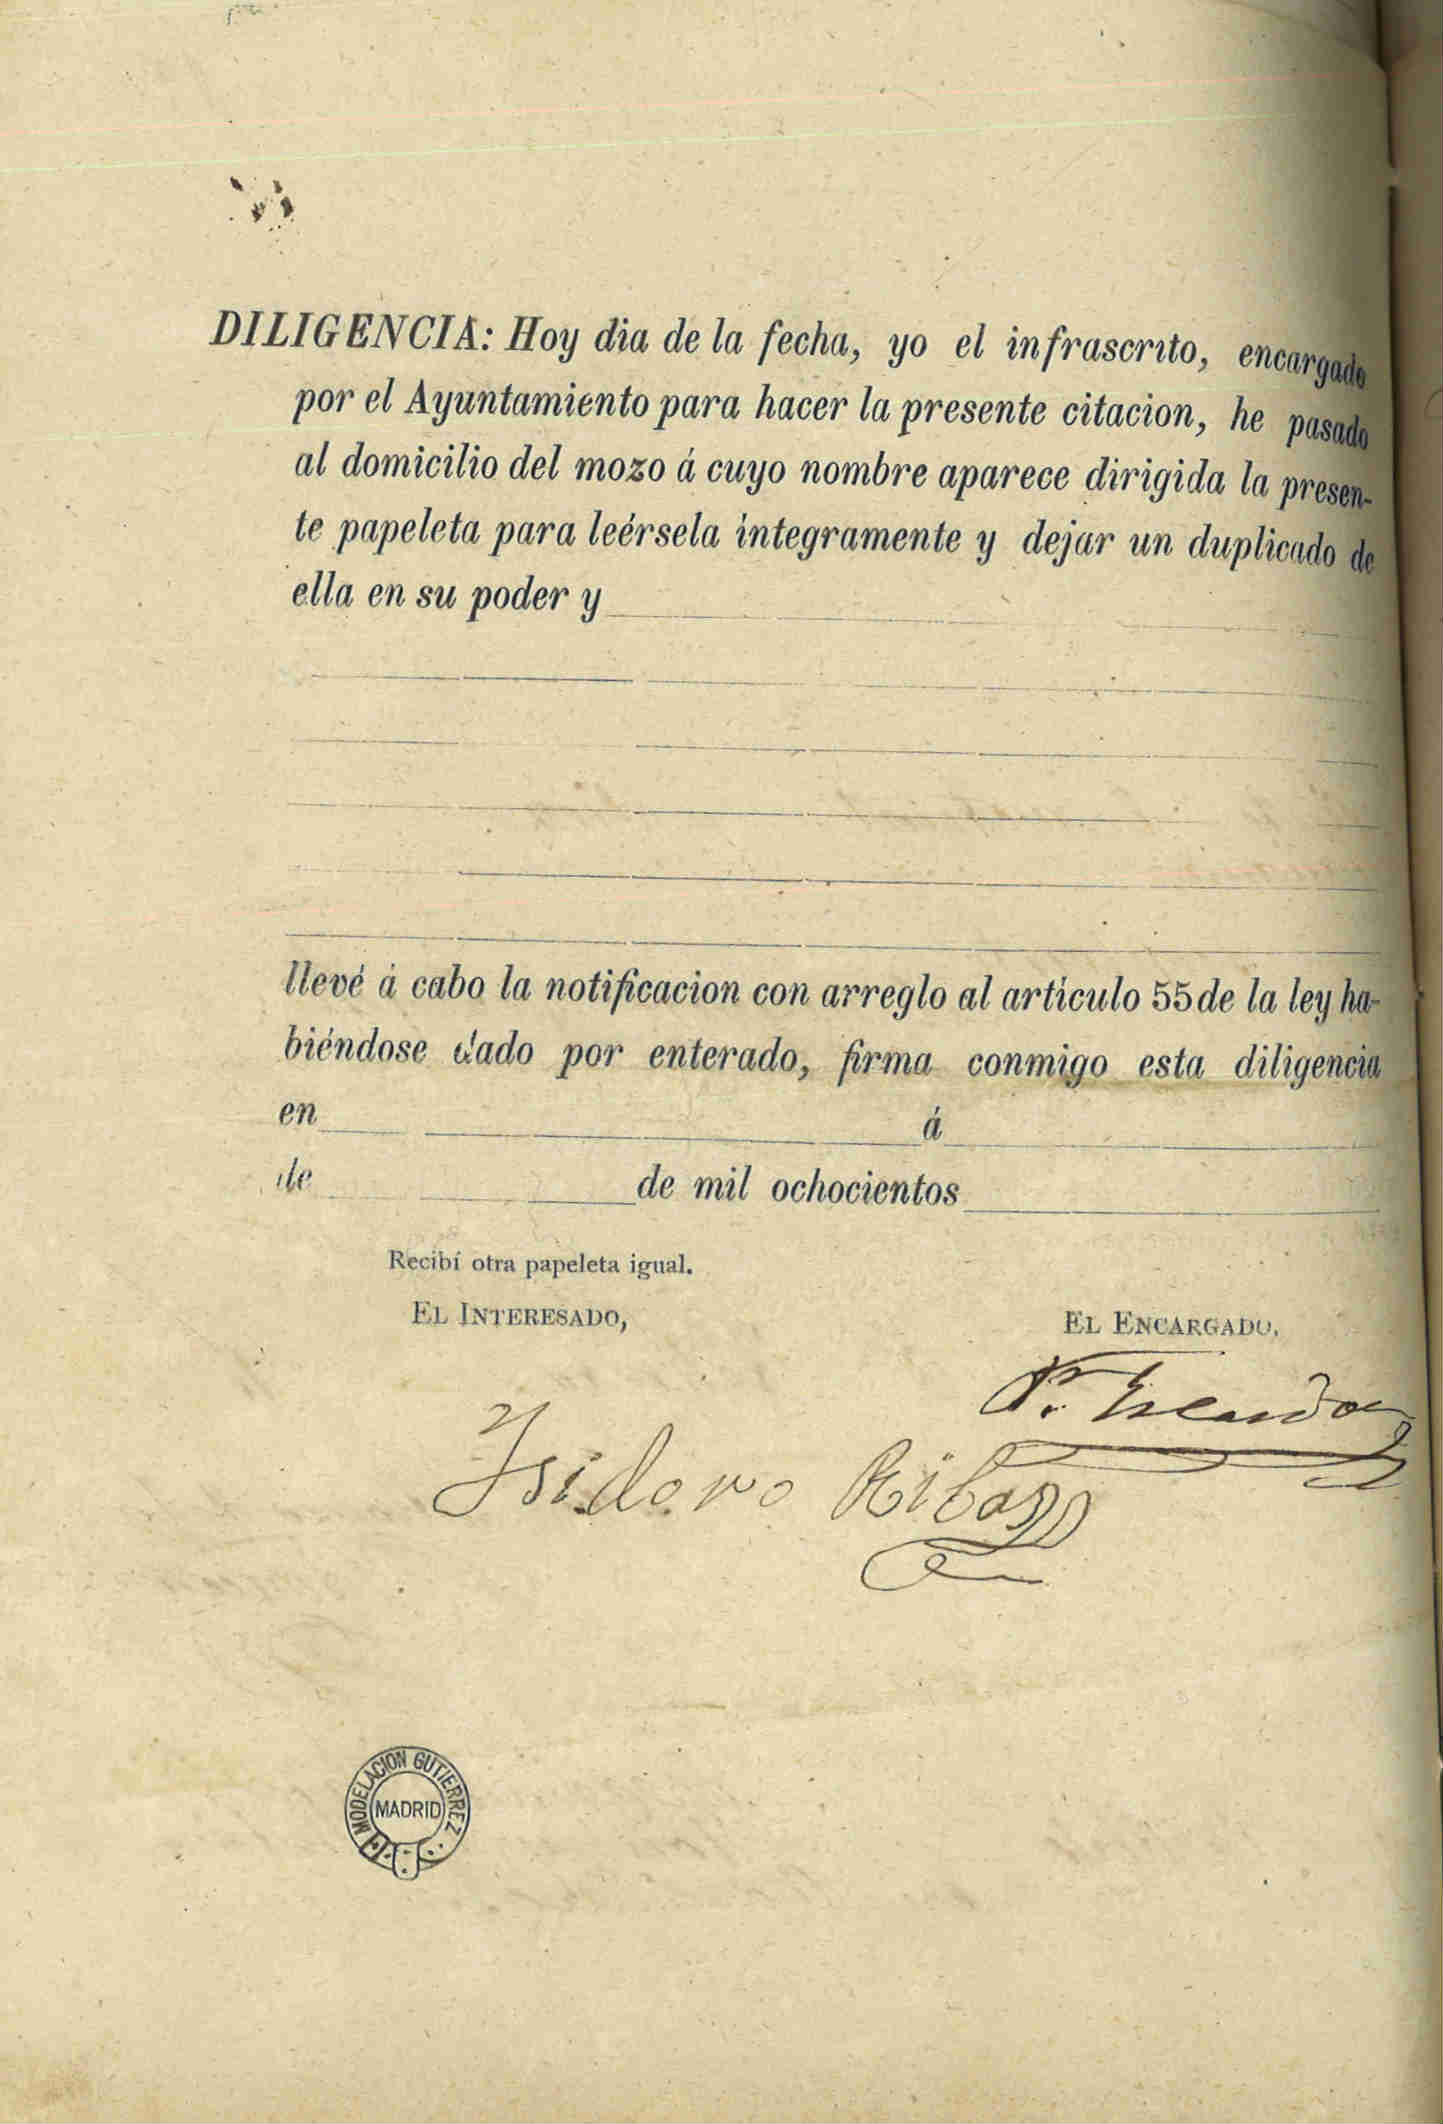 DILIGENCIA: Hoy dia de la fecha, yo el infrascrito, encargado
por el Ayuntamiento para hacer la presente citacion, he pasado
al domicilio del mozo á cuyo nombre aparece dirigida la presen-
te papeleta para leérsela íntegramente y dejar un duplicado de
ella en su poder y
llevé á cabo la notificacion con arreglo al artículo 55 de la ley ha-
biéndose dado por enterado, firma conmigo esta diligencia
en á
de de mil ochocientos
Recibí otra papeleta igual.
EL INTERESADO,
EL ENCARGADO,
Isidoro Ribas
MODELACION GUTIERREZ
MADRID